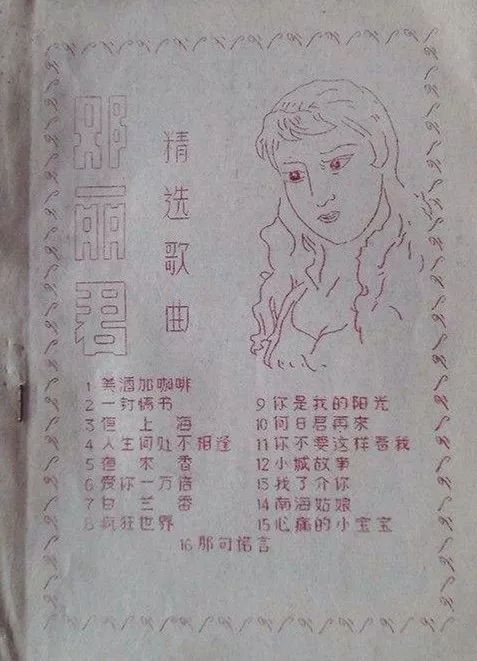 邓丽君
精选歌曲
1 美酒加咖啡
2 一封情书
3 夜上海
4 人生何处不相逢
5 夜来香
6 爱你一万倍
7 白兰香
8 疯狂世界
9 你是我的阳光
10 何日君再來
11 你不要这样看我
12 小城故事
13 我了介你
14 南海姑娘
15 心痛的小宝宝
16 那句诺言